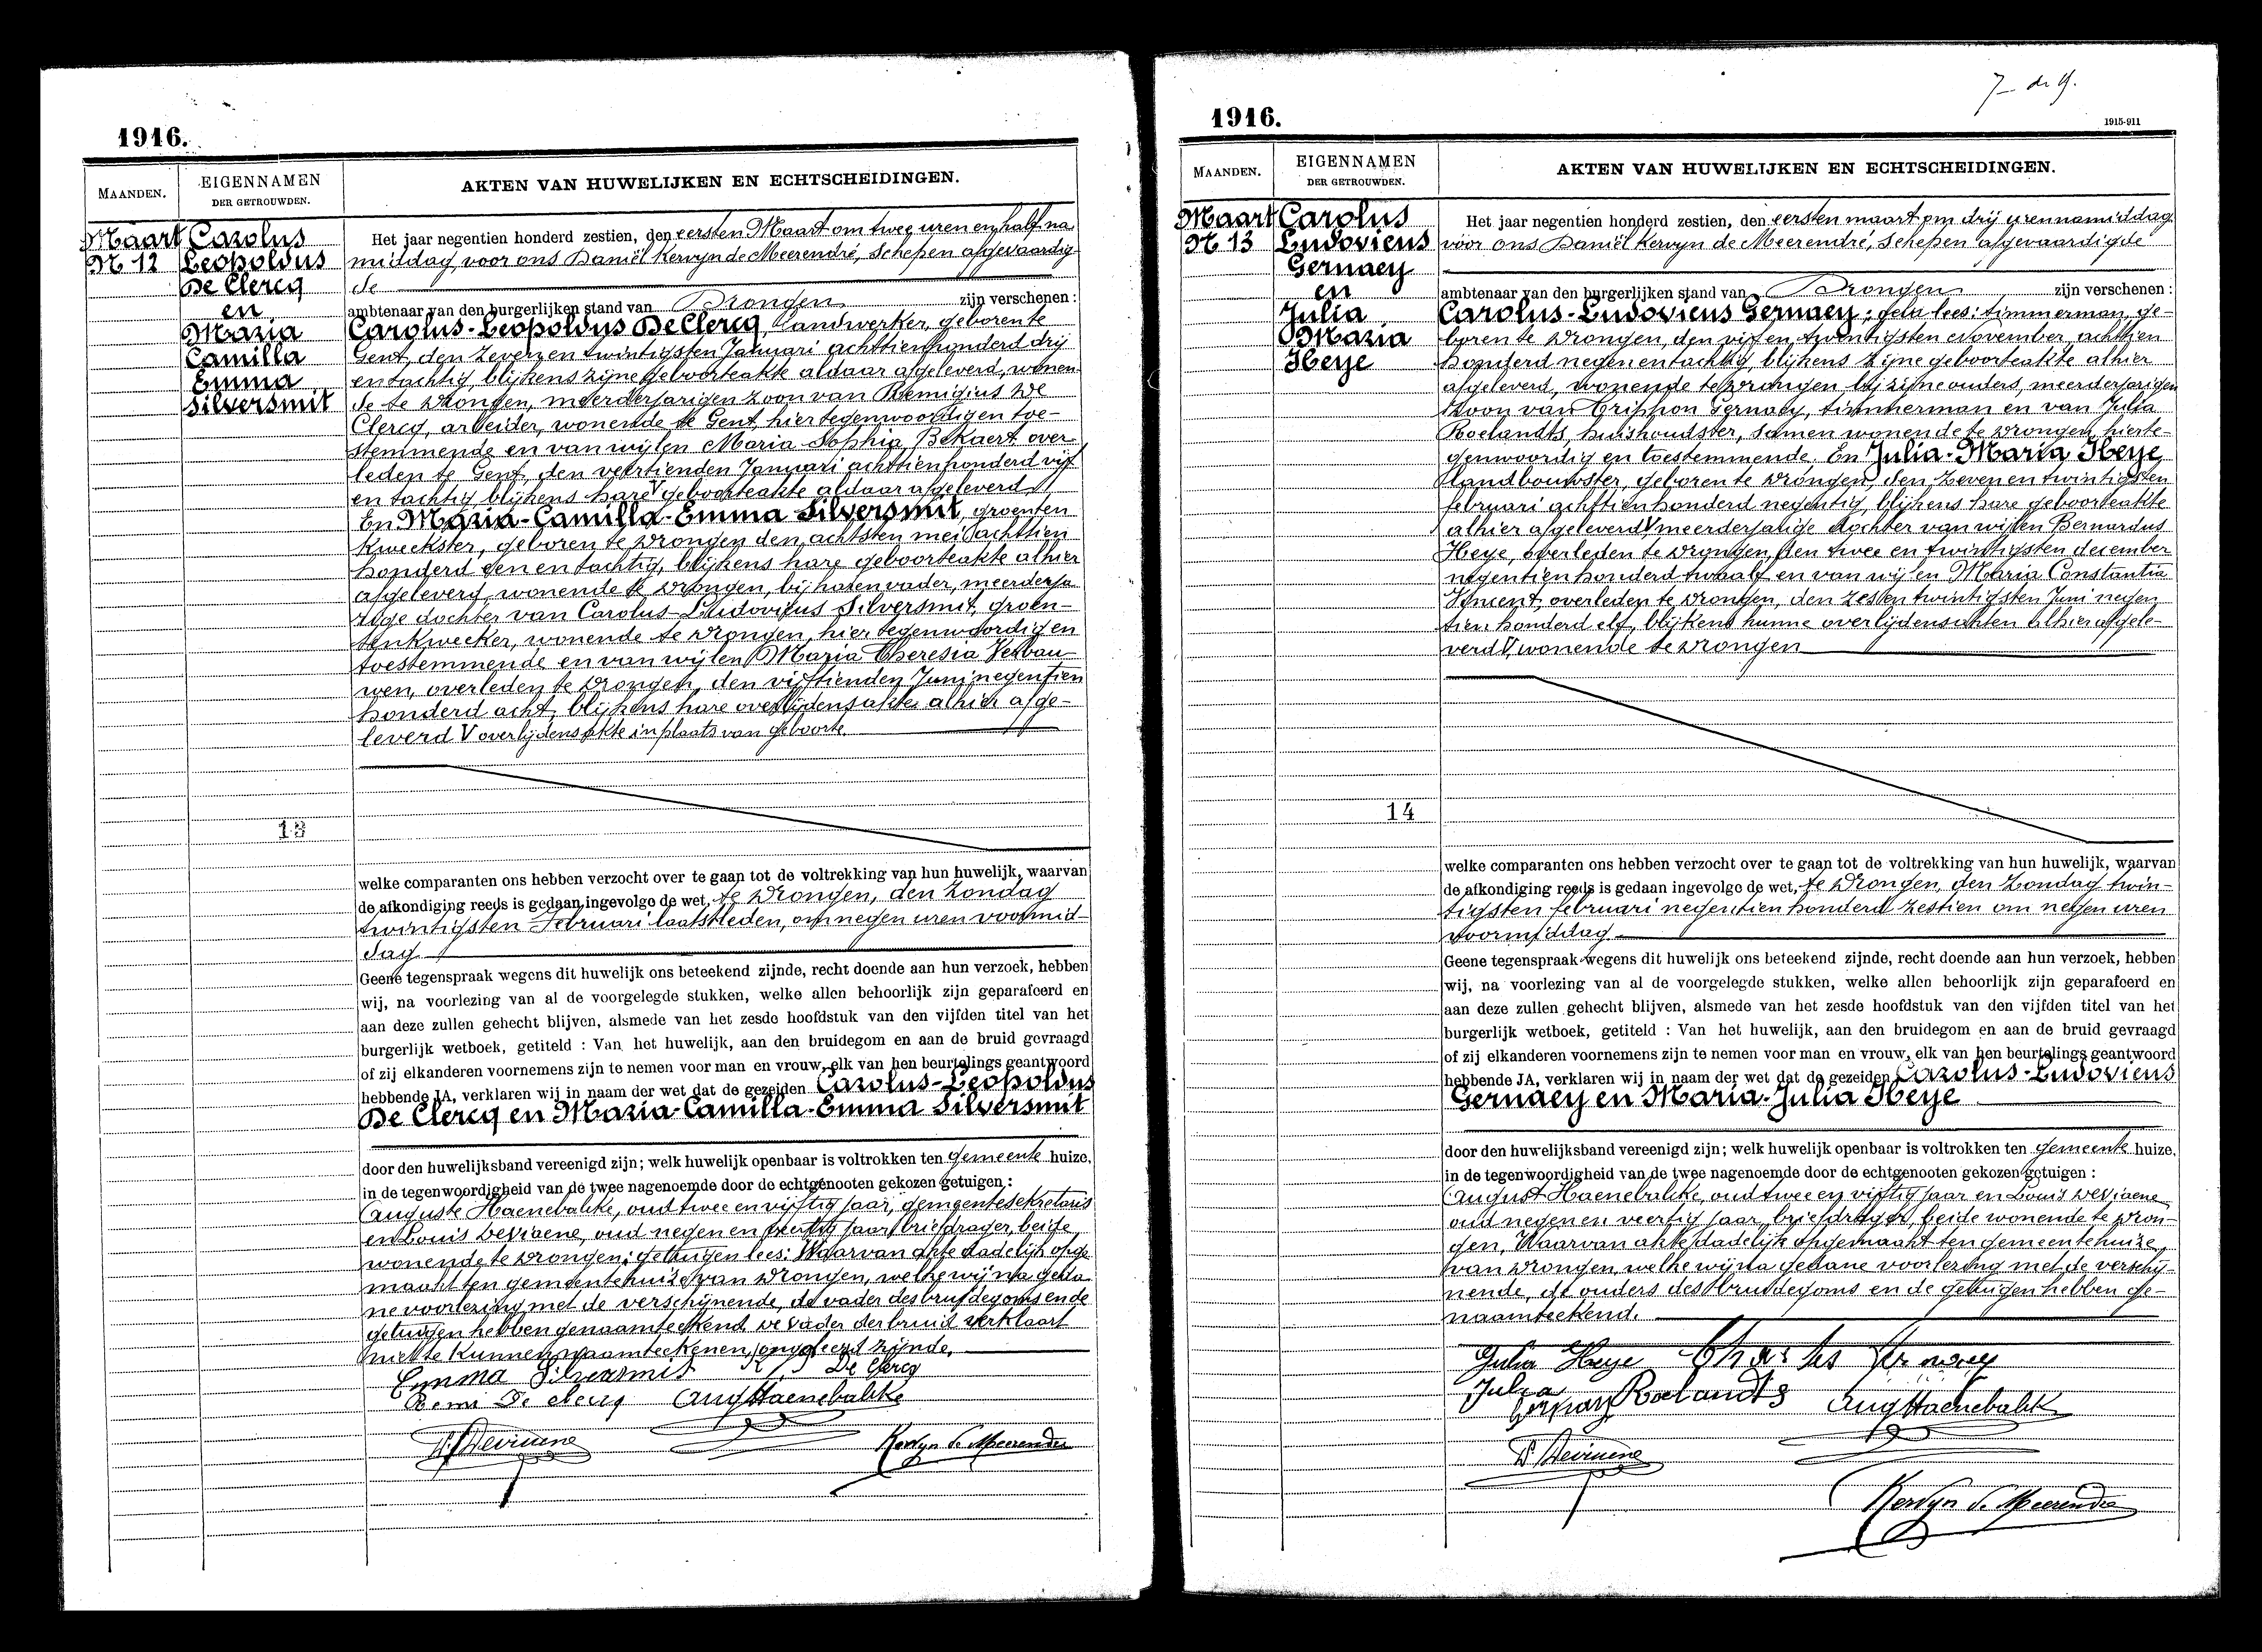 1916.
MAANDEN.
EIGENNAMEN
DER GETROUWDEN.
AKTEN VAN HUWELIJKEN EN ECHTSCHEIDINGEN.
Maart
N 12
Carolus
Leopoldus
De Clercq
en
Maria
Camilla
Emma
Silversmit
Het jaar negentien honderd zestien, den eersten Maart om twee uren en half na
middag voor ons Daniël Kervyn de Meerendré, Schepen afgevaardig-
de
ambtenaar van den burgerlijken stand van Drongen zijn verschenen :
Carolus-Leopoldus De Clercq, Landwerker, geboren te
Gent, den zeven en twintigsten Januari achttien honderd drij
en tachtig, blijkens zijne geboorteakte aldaar afgeleverd, wonen-
de te Drongen, meerderjarigen zoon van Remigius De
Clercq, arbeider, wonende te Gent, hier tegenwoordig en toe-
stemmende en van wijlen Maria Sophia Bekaert over-
leden te Gent, den veertienden Januari achttienhonderd vijf
en tachtig blijkens hare V geboorteakte aldaar afgeleverd
En Maria-Camilla-Emma Silversmit, groenten
kweekster, geboren te Drongen den achtsten mei achttien
honderd een en tachtig, blijkens hare geboorteakte alhier
afgeleverd wonende te Drongen, bij haren vader, meerderja
rige dochter van Carolus Ludovicus Silversmit, groen-
tenkweeker, wonende te Drongen, hier tegenwoordig en
toestemmende en van wijlen Maria Theresia Verbau-
wen, overleden te Drongen, den vijftienden Juni negentien
honderd acht, blijkens hare overlijdensakte alhier afge-
leverd V overlijdensakte in plaats van geboorte
13
welke comparanten ons hebben verzocht over te gaan tot de voltrekking van hun huwelijk, waarvan
de afkondiging reeds is gedaan ingevolge de wet, te Drongen, den Zondag
twintigsten Februari laatstleden, om negen uren voormid-
dag
Geene tegenspraak wegens dit huwelijk ons beteekend zijnde, recht doende aan hun verzoek, hebben
wij, na voorlezing van al de voorgelegde stukken, welke allen behoorlijk zijn geparafeerd en
aan deze zullen gehecht blijven, alsmede van het zesde hoofdstuk van den vijfden titel van het
burgerlijk wetboek, getiteld : Van het huwelijk, aan den bruidegom en aan de bruid gevraagd
of zij elkanderen voornemens zijn te nemen voor man en vrouw, elk van hen beurtelings geantwoord
hebbende JA, verklaren wij in naam der wet dat de gezeiden Carolus-Leopoldus
De Clercq en Maria-Camilla-Emma Silversmit
door den huwelijksband vereenigd zijn; welk huwelijk openbaar is voltrokken ten gemeente huize,
in de tegenwoordigheid van de twee nagenoemde door de echtgenooten gekozen getuigen :
Auguste Haenebalcke, oud twee en vijftig jaar, gemeentesekretaris
en Louis Deviaene, oud negen en veertig jaar, briefdrager, beide
wonende te Drongen; getuigen lees: Waarvan akte dadelijk opge
maakt ten gemeentehuize van Drongen, welke wij na geda-
ne voorlezing met de verschijnende, de vader des bruidegoms en de
getuigen hebben genaamteekend De vader der bruid verklaart
niet te kunnen naamteekenen, ongeleerd zijnde.
Emma Silversmit De Clercq
Remi De clercq Aug Haenebalcke
Deviaene Kervyn de Meerendre
7 de 9.
1916.
1915-911
MAANDEN.
EIGENNAMEN
DER GETROUWDEN.
AKTEN VAN HUWELIJKEN EN ECHTSCHEIDINGEN.
Maart
N 13
Carolus
Ludovicus
Gernaey
en
Julia
Maria
Heye
Het jaar negentien honderd zestien, den eersten maart om drij uren namiddag
voor ons Daniël Kervyn de Meerendré, Schepen afgevaardigde
ambtenaar van den burgerlijken stand van Drongen zijn verschenen :
Carolus-Ludovicus Gernaey; lees: timmerman, ge-
boren te Drongen, den vijf en twintigsten November, achttien
honderd negen en tachtig, blijkens zijne geboorteakte alhier
afgeleverd, wonende te Drongen bij zijne ouders, meerderjarigen
zoon van Crispyn Gernaey, timmerman en van Julia
Roelandts, huishoudster, samen wonende te Drongen, hierte-
genwoordig en toestemmende. En Julia-Maria Heye
landbouwster, geboren te Drongen, den zeven en twintigsten
februari achttien honderd negentig, blijkens hare geboorteakte
alhier afgeleverd V meerderjarige dochter van wijlen Bernardus
Heye, overleden te Drongen, den twee en twintigsten december
negentien honderd twaalf en van wijlen Maria Constantia
Vincent, overleden te Drongen, den zes en twintigsten Juni negen
tien honderd elf, blijkens hunne overlijdensakten alhier afgele-
verd V, wonende te Drongen
14
welke comparanten ons hebben verzocht over te gaan tot de voltrekking van hun huwelijk, waarvan
de afkondiging reeds is gedaan ingevolge de wet, te Drongen, den Zondag twin-
tigsten februari negentien honderd zestien om negen uren
voormiddag
Geene tegenspraak wegens dit huwelijk ons beteekend zijnde, recht doende aan hun verzoek, hebben
wij, na voorlezing van al de voorgelegde stukken, welke allen behoorlijk zijn geparafeerd en
aan deze zullen gehecht blijven, alsmede van het zesde hoofdstuk van den vijfden titel van het
burgerlijk wetboek, getiteld : Van het huwelijk, aan den bruidegom en aan de bruid gevraagd
of zij elkanderen voornemens zijn te nemen voor man en vrouw, elk van hen beurtelings geantwoord
hebbende JA, verklaren wij in naam der wet dat de gezeiden Carolus-Ludovicus
Gernaey en Maria-Julia Heye
door den huwelijksband vereenigd zijn; welk huwelijk openbaar is voltrokken ten gemeente huize,
in de tegenwoordigheid van de twee nagenoemde door de echtgenooten gekozen getuigen :
August Haenebalcke, oud twee en vijftig jaar en Louis Deviaene
oud negen en veertig jaar, briefdrager, beide wonende te Dron-
gen, Waarvan akte dadelijk opgemaakt ten gemeentehuize
van Drongen, welke wij na gedane voorlezing met de verschij-
nende, de ouders des bruidegoms en de getuigen hebben ge-
naamteekend.
Julia Heye Charles Gernaey
Julia Roelandts
Gernaey Aug Haenebalck
Deviaene
Kervyn de Meerendre